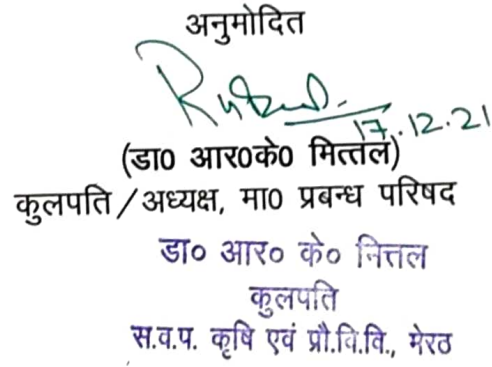 अनुमोदित
17.12.21
(डा0 आर0के0 मित्तल)
कुलपति / अध्यक्ष, मा0 प्रबन्ध परिषद
डा० आर० के० नित्तल
कुलपति
स.व.प. कृषि एवं प्रौ.वि.वि., मेरठ